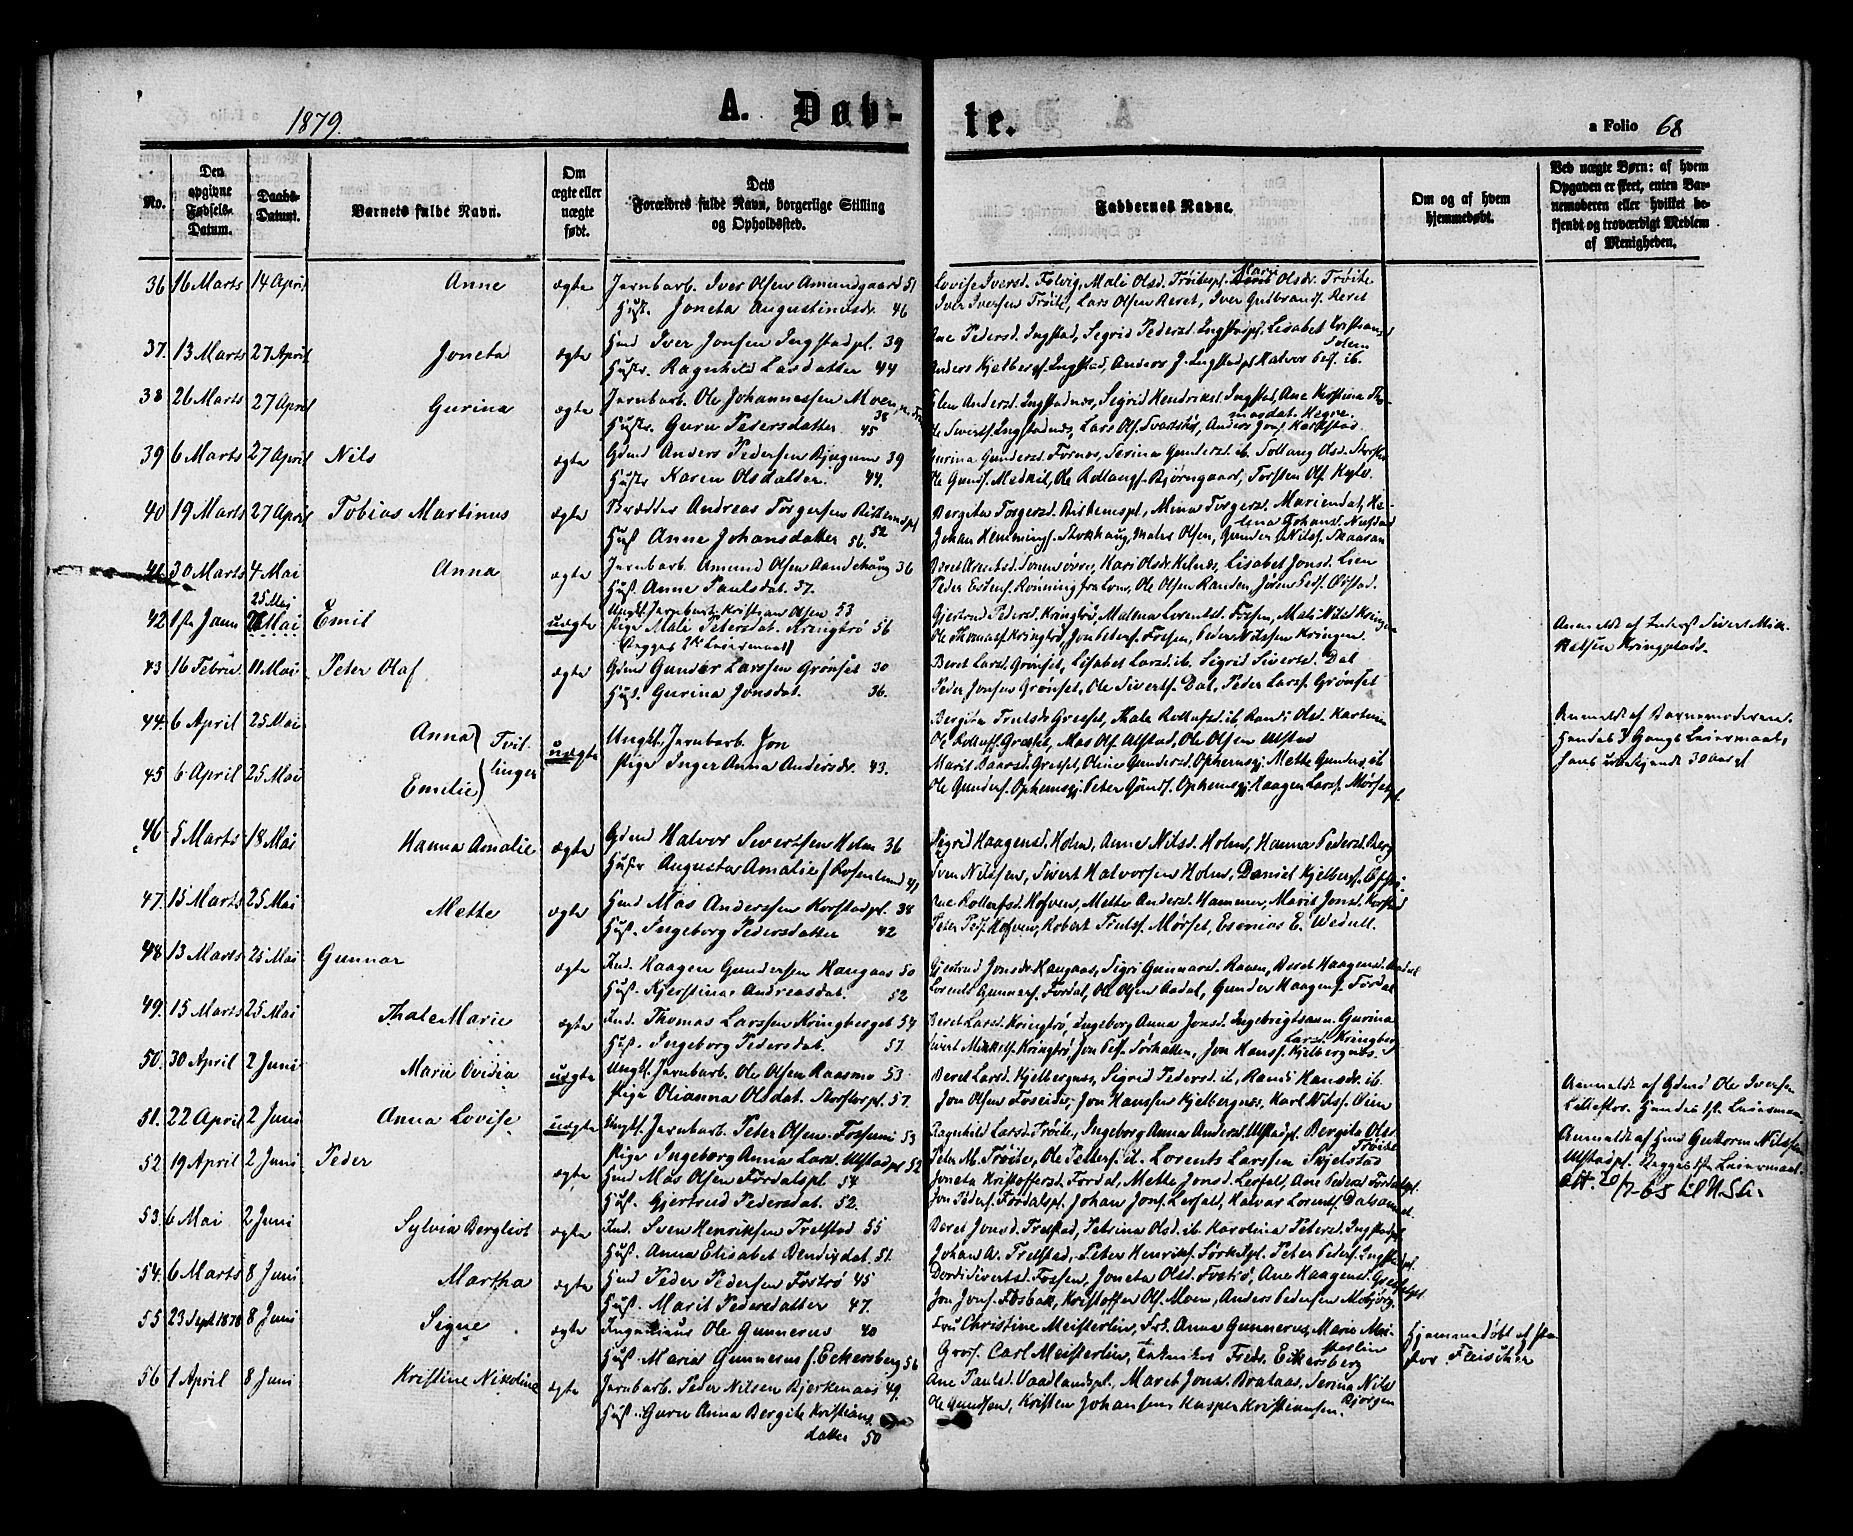 1879.
A. Døb-
te.
a Folio 68
No.
Den opgivne Fødsels-Datum.
Daabs-Datum.
Barnets fulde Navn.
Om ægte eller uægte født.
Dets Forældres fulde Navn, borgerlige Stilling og Opholdssted.
Faddernes Navne.
Om og af hvem hjemmedøbt.
Ved uægte Børn: af hvem Opgaven er skeet, enten Barnemoderen eller hvilket bekjendt og troværdigt Medlem af Menigheden.
36 16 Marts 14 April Anne ægte Jernbarb. Iver Olsen Amundgaard 51
Hust. Joneta Augustinusdr. 46
Lovise Iversd. Folvig, Mali Olsd. Trøitespl. Mari Olsdr. Trøite
Iver Iversen Trøite, Lars Olsen Reret, Iver Gudbrands. Reret
37. 13 Marts 27 April Joneta ægte Hmd Iver Jonsen Ingstadpl. 39
Hustr. Ragnhild Larsdatter 44
Ane Pedersd. Ingstad, Sigrid Pedersd. Ingstadpl. Lisabet Kristians
Solem
Anders Kjelberg Ingstad, Anders J. Ingstadpl Halvor ib.
38 26 Marts 27 April Gurina ægte Jernbarb. Ole Johannessen Moen 38
Hustr. Guru Pedersdatter 45
Elen Andersd. Ingstadnæs, Sigrid Hendriksd. Ingstad, Ane Kirstina Tho-
masdat. Hegre.
Ole Sivertsf. Ingstadnæs, Lars Ols. Anders Jons. Karlstad
39 6 Marts 27 April Nils ægte Gdmd Anders Pedersen Bjørgum 39
Hustr Karen Olsdatter. 44.
Gurina Gundersd. Fornes, Serina Gundersd. ib. Solloug Olsd.
Ole Gunds. Bjørngaar, Torsten Ols.
40 19 Marts 27 April Tobias Martinus ægte Andreas Torgersen 52
Hust Anne Johansdatter 56.
Bergeta Torgersd. Mina Torgersd. Mariendal, He-
lena Johansd.
Johan Hemmings. Stokhaug, Olsen, Gunder Nils. Skaaran
41 30 Marts 4 Mai Anna ægte Jernbarb. Amund Olsen Aandehaug 36
Hust. Anne Paulsdat. 37.
Beret Arntsd. Kari Olsdr. Lisabet Jonsd. Lien
Peder Estens. Rønning fra Lom, Ole Olsen Randen, Jøren Peds.
25 Mai
42 1ste Janu Mai Emil uægte Ungkl. Jernbarb. Kristian Olsen 53
Pige Mali Petersdat. Kringtrø 56
Begges 1ste Leiermaal
Gjertrud Pedersd. Kringtrø, Malena Lorentsd. Fossen, Mali Nilsd Kringen
Ole Thomass. Kringtrø, Jon Peters. Fossen, Peder Nilssen Kringen.
Anmeldt af Sivert Mik-
kelsen Kringplads.
43 16 Febru 11 Mai Peter Olaf ægte Gdmd Gunder Larssen Grønset 30
Hust. Gurina Jonsdat. 36.
Beret Larsd. Grønset, Lisabet Larsd. ib. Sigrid Sivertsd. Dal
Peder Jonsen Grønset, Ole Siverts. Dal, Peder Larss. Grønset
44. 6 April 25 Mai Anna
45 6 April 25 Mai Emilie
Tvil-
linger
uægte Ungkl. Jernbarb. Jon
Pige Inger Anna Andersdr. 43.
Bergita Trulsdr. Græset, Thale Rollafsd. ib, Randi Olsd.
Ole Rollafs. Græset, Mas Ols. Ulstad, Ole Olsen Ulstad
Marit Baarsd. Græset, Oline Gundersd. Ophemsgj. Mette Gundersd. ib
Ole Gunders. Ophemsgj. Peter Gunds. Ophemsgj. Haagen Larss. Mørset
Anmeldt af Barnemoderen.
Hendes 3 Gangs Leiermaal,
hans ubekjendt 30 aar
46 5 Marts 18 Mai Hanna Amalie ægte Gdmd Halvor Sivertsen Holm 36
Hustr Augusta Amalie f. Rosenlund 41
Sigrid Haagensd. Holm, Anne Nilsd. Holm, Hanna Pedersd. Berg
Sven Nilssen, Sivert Halvorsen Holm, Daniel Kjelbergs.
47. 15 Marts 25 Mai Mette ægte Hmd Mas Anderssen Korstadpl. 38
Hust. Ingeborg Pedersdatter 42
Ane Rollafsd. Hofven, Mette Andersd. Hammer, Marit Jonsd. Korstad
Peter Peds. Hofven, Robert Truls. Mørset, Esenias E. Wedul.
48 13 Marts 25 Mai Gunnar ægte Ind. Haagen Gundersen Haugaas 50
Hust. Kjerstina Andreasdat. 52
Gjertrud Jonsdr. Haugaas, Sigri Gunnarsd. Raaen, Beret Haagensd. Aadal
Lorents Gunners. Fordal, Ole Olsen Aadal, Gunder Haagens. Fordal
49. 15 Marts 25 Mai Thale Marie ægte Ind. Thomas Larssen Kringberget 54
Hust. Ingeborg Pedersdat. 57.
Beret Larsd. Kringtrø, Ingeborg Anna Jonsd. Ingebrigtsaun. Gurina
Larsd. Kringberg
Sivert Mikkels. Kringtrø, Jon Peds. Jon Hanss. Kjelbergnes.
50. 30 April 2 Juni Marie Ovidia uægte Ungkl. Jernbarb. Ole Olsen Raasmo 53
Pige Olianna Olsdat. 57.
Beret Larsd. Kjelbergnes, Sigrid Pedersd. ib, Randi Hansdr. ib.
Jon Olsen Foseide, Jon Hanssen Kjelbergnes, Karl Nilss.
Anmeldt af Gdmd Ole Iversen
Hendes 1ste Leiermaal
51. 22 April 2 Juni Anna Lovise uægte Ungkl. Jernbarb. Peter Olsen Fossumi 53
Pige Ingeborg Anna Larsd. Ulstadpl. 52
Ragnhild Larsd. Trøite, Ingeborg Anna Andersd. Ulstadpl. Bergita Olsd
Trøite
Peter M. Trøite, Ole Petters. ib. Lorents Larssen Skjelstad
Anmeldt af Hmd Guttorm Nilssen
Ulstadpl. Begges 1ste Leiermaal.
att. 20/7-65
52 19 April 2 Juni Peder ægte Hmd Mas Olsen Fordalspl 54
Hust. Gjertrud Pedersdat. 52.
Joneta Kristoffersd. Fordal, Mette Jonsd. Lerfal, Ane Pedersd Fordalspl
Jon Peders. Fordalspl. Johan Jons. Lerfal, Halvar Lorents. Dalsaunet
53. 6 Mai 2 Juni Sylvia Bergliot ægte Ind. Sven Henriksen Trelstad 55
Hust. Anna Elisabet Bendixdat. 51.
Beret Jonsd. Trelstad, Petrina Olsd. ib. Karolina Petersd. Ingstadpl.
Johan A. Trelstad, Peter Henriks. Peter Peders. Ingstadpl.
54. 6 Marts 8 Juni Martha ægte Hmd Peder Pedersen Fostrø 45
Hust. Marit Pedersdatter 47.
Dordi Sivertsd. Fossen, Joneta Olsd. Fostrø, Ane Haagensd. Græsetpl.
Jon Jons. Fosbak, Kristoffer Ols. Moen, Anders Pedersen Mobjørg.
55 23 Sept 1878 8 Juni Signe ægte Ingeniør Ole Gunnerus 40
Hust. Maria Gunnerus f. Eckersberg 56
Fru Christine Meisterlin, Frk. Anna Gunnerus, Marie Mei-
sterlin
Gros. Carl Meisterlin, Tekniker Fredr. Eckersberg
Hjemmedøbt af Pa-
stor Fleischer
56 1 April 8 Juni Kristine Nikoline ægte Jernbarb. Peder Nilsen Bjerkenaas 49.
Hust. Guru Anna Bergite Kristians
datter 50
Ane Paulsd. Vaadlandspl., Maret Jonsd. Brataas, Serina Nilsd
Bjørgen
Ole Gundsen, Kristen Johansens Kasper Kristiansen.